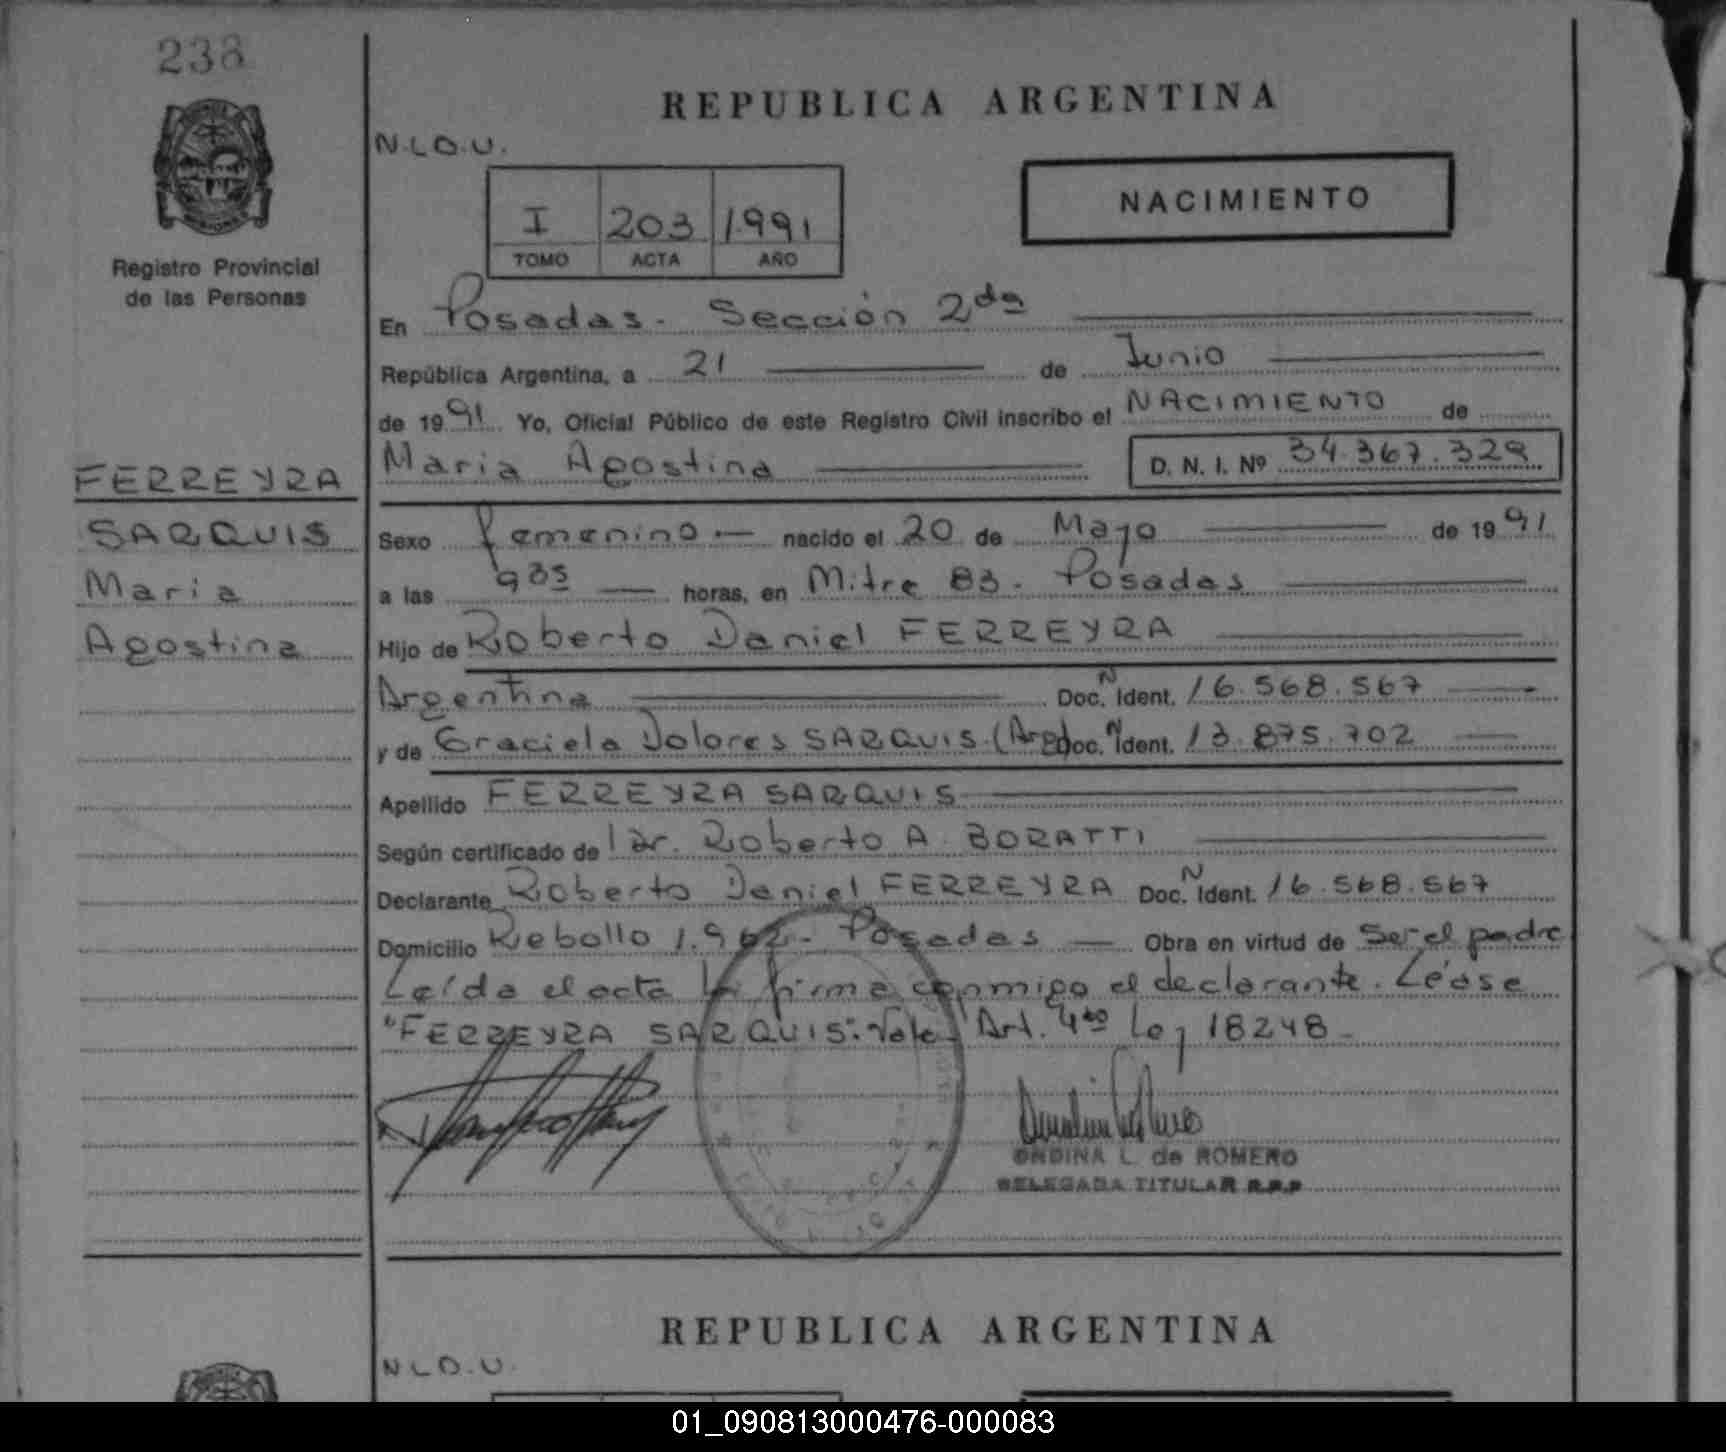 238
REPUBLICA ARGENTINA
N.L.O.U.
NACIMIENTO
I 203 1991
TOMO ACTA AÑO
Registro Provincial
de las Personas
En Posadas - Sección 2da
República Argentina, a 21 de Junio
de 1991 Yo, Oficial Público de este Registro Civil inscribo el NACIMIENTO de
Maria Agostina D. N. I. Nº 34.367.329
FERREYRA
SARQUIS
Maria
Agostina
Sexo femenino nacido el 20 de Mayo de 1991
a las 935 horas, en Mitre 83 - Posadas
Hijo de Roberto Daniel FERREYRA
Argentina Doc. N Ident. 16.568.567
y de Graciela Dolores SARQUIS (Arg) Doc. N Ident. 13.875.702
Apellido FERREYRA SARQUIS
Según certificado de Dr. Roberto A. BORATTI
Declarante Roberto Daniel FERREYRA Doc. N Ident. 16.568.567
Domicilio Rebollo 1.962 - Posadas Obra en virtud de Ser el padre
Leída el acta la firma conmigo el declarante. Léase
"FERREYRA SARQUIS". Vale. Art. 4to Ley 18248 -
ONDINA L. de ROMERO
DELEGADA TITULAR R.P.P
REPUBLICA ARGENTINA
N.L.O.U.
01_090813000476-000083